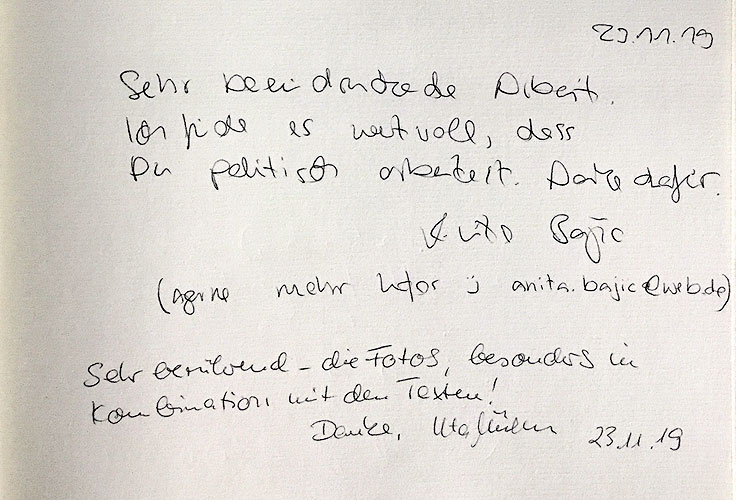 23.11.19
Sehr beeindruckende Arbeit.
Ich finde es wertvoll, dass
Du politisch arbeitest. Danke dafür.
Anita Bajic
(gerne mehr Infos :) anita.bajic@web.de)
Sehr berührend - die Fotos, besonders in
Kombination mit den Texten!
Danke, Uta 23.11.19